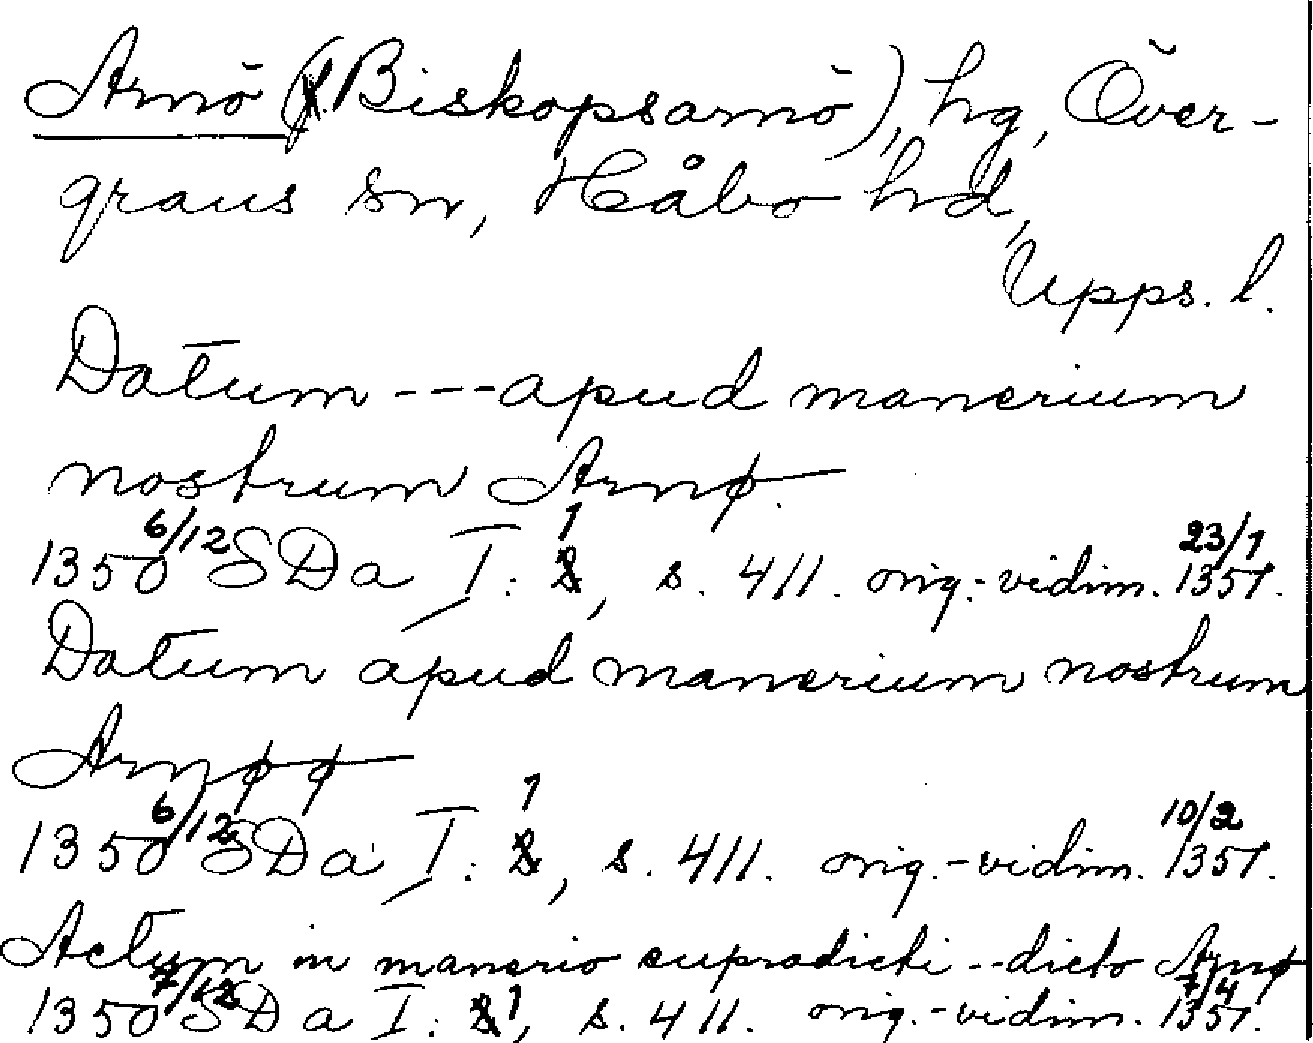 Arnö (Biskopsarnö), hg, Över-
grans sn, Håbo hd,
Upps. l.
Datum --- apud manerium
nostrum Arnø.
1350 6/12 SDa I: 1, s. 411. orig.-vidim. 23/1 1351.
Datum apud manerium nostrum
Arnøø
1350 6/12 SDa I: 1, s. 411. orig.-vidim. 10/2 1351.
Actum in manerio supradicti -- dicto Arnø
1350 7/12 SDa I: 1, s. 411. orig.-vidim. 7/4 1351.